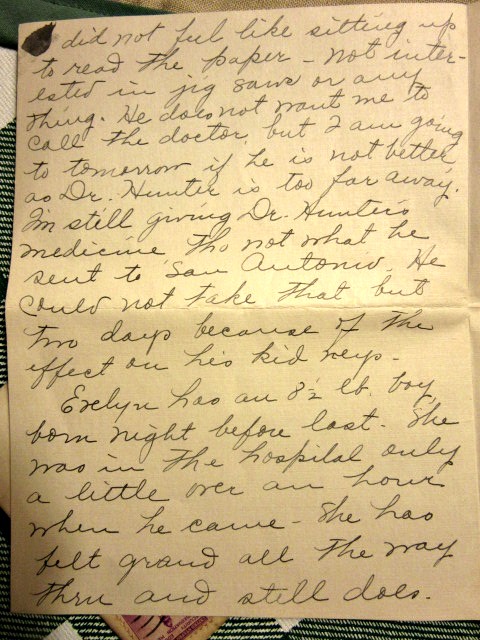 did not feel like sitting up
to read the paper - not inter-
ested in jig saws or any
thing. He does not want me to
call the doctor, but I am going
to tomorrow if he is not better
as Dr. Hunter is too far away.
I'm still giving Dr. Hunter's
medicine tho not what he
sent to San Antonio. He
could not take that but
two days because of the
effect on his kid neys -
Evelyn has an 8½ lb. boy
born night before last. She
was in the hospital only
a little over an hour
when he came - She has
felt grand all the way
thru and still does.